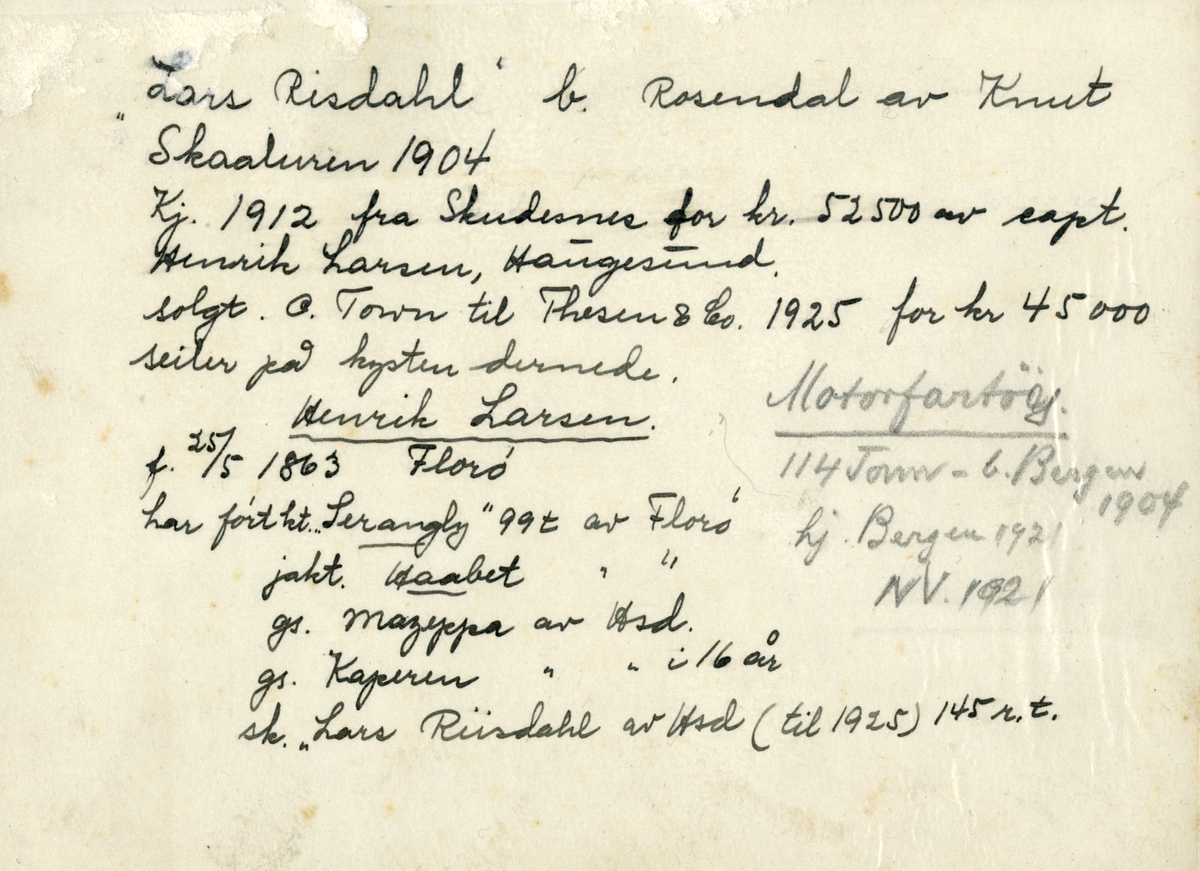 „Lars Risdahl“ b. Rosendal av Knut
Skaaluren 1904
Kj. 1912 fra Skudesnes for kr. 52500 av capt.
Henrik Larsen, Haugesund.
solgt. C. Town til Thesen & Co. 1925 for kr 45000
seiler på kysten dernede.
Henrik Larsen.
f. 25/5 1863 Florö
har fört kt. „Serangly“ 99t av Florö
jakt. Haabet " "
gs. Mazeppa av Hsd.
gs. Kaperen " " i 16 år
sk. „Lars Riisdahl av Hsd (til 1925) 145 r.t.
Motorfartöy.
114 Tonn - b. Bergen
1904
hj. Bergen 1921
NV. 1921